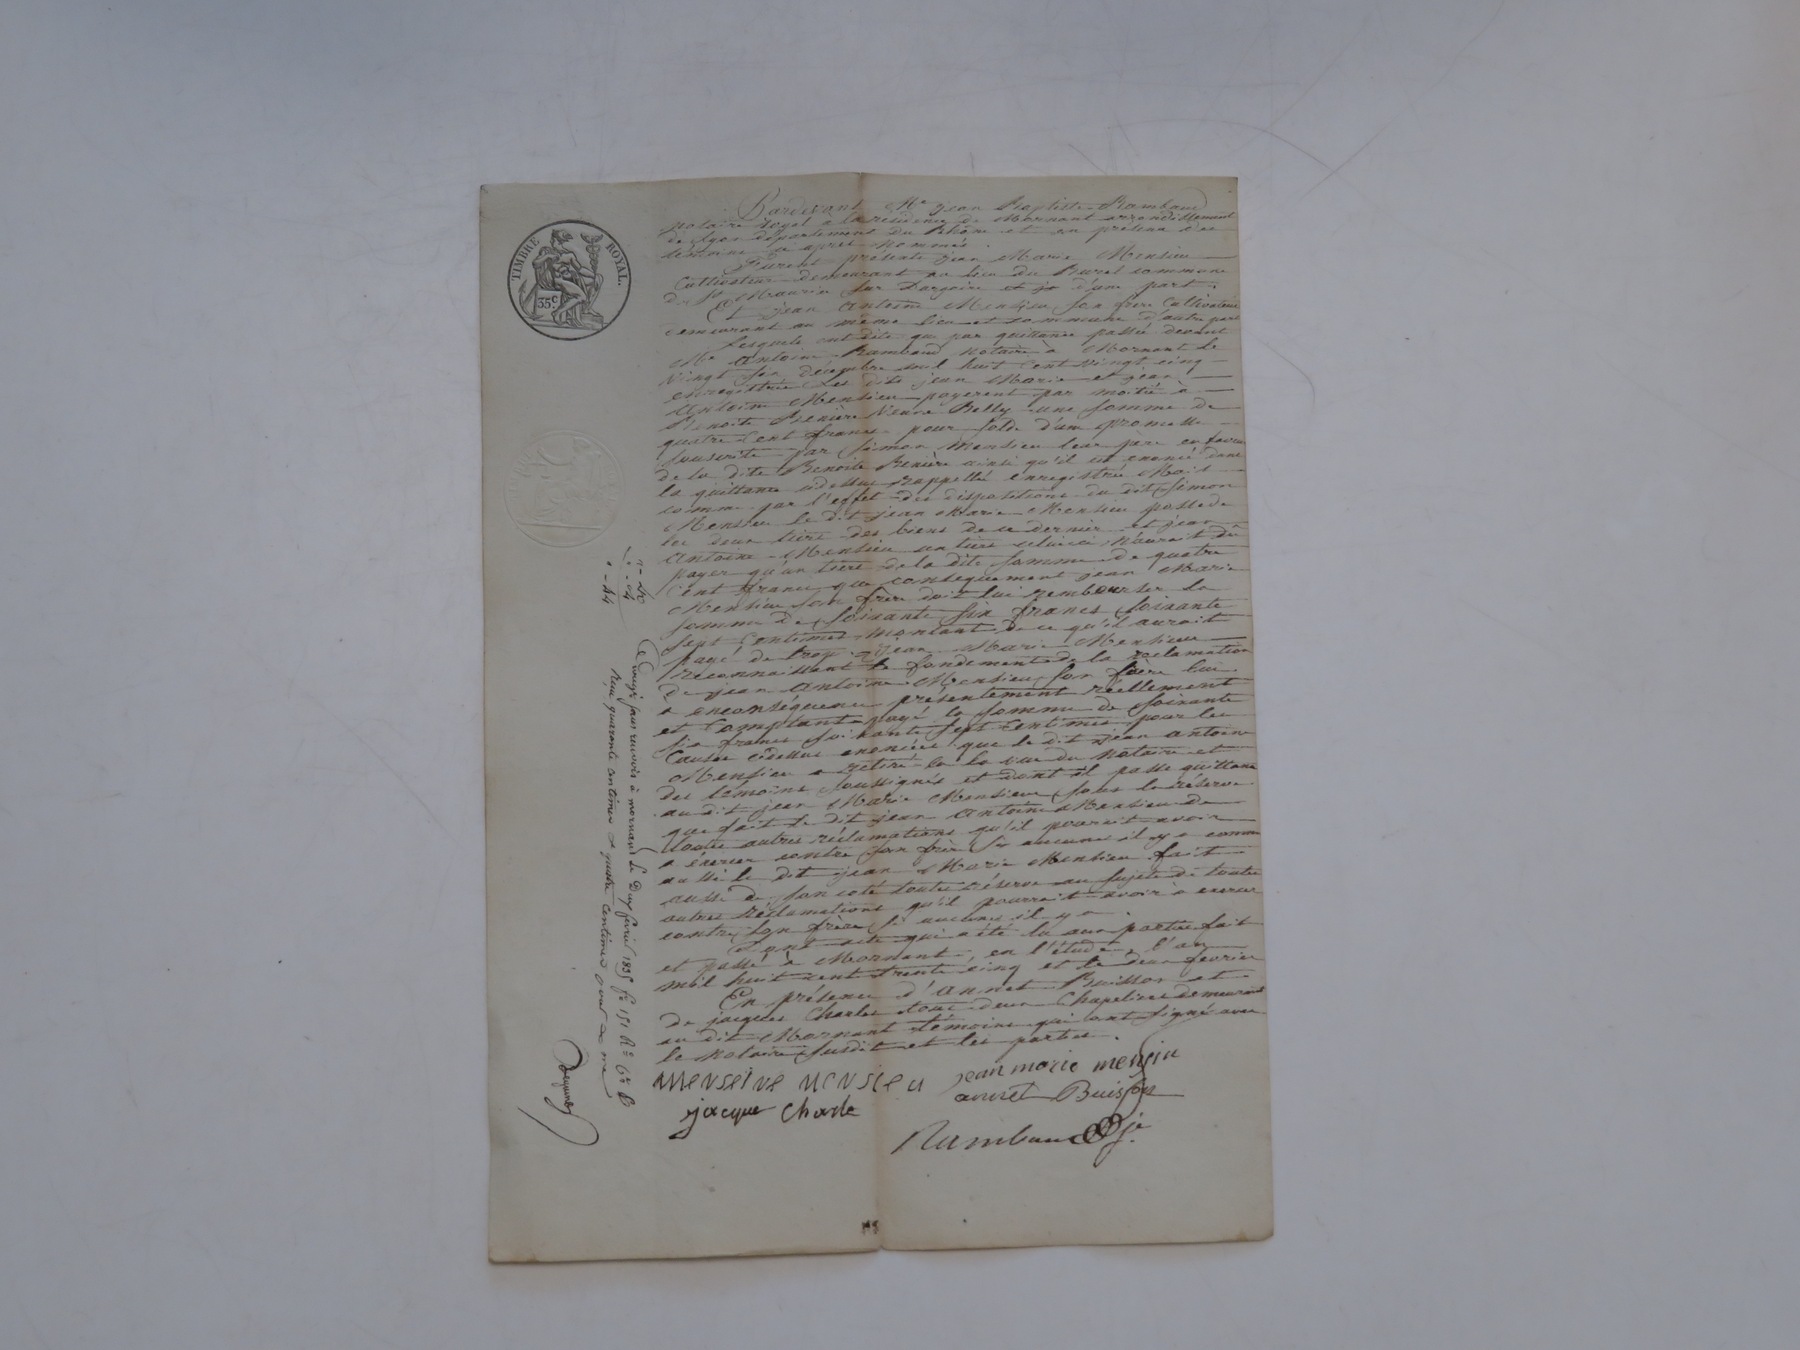 TIMBRE ROYAL
35 c.
Pardevant Me jean Baptiste Rambaud
notaire royal a la résidence de Mornant arrondissement
de Lyon département du Rhône et en présence des
témoins ci après nommés.
Furent présents jean Marie Mensieu
Cultivateur demeurant au lieu du Burel commune
De St Maurice sur Dargoire et  d'une part.
Et jean Antoine Mensieu son frère Cultivateur
demeurant au même lieu et commune d'autre part
Lesquels ont dits que par quittance passée devant
Me Antoine Rambaud Notaire à Mornant le
Vingt  décembre mil huit cent vingt cinq
enregistrée Les dits jean Marie et jean
Antoine Mensieu payerent par moitié à
Benoite  Veuve  une somme de
quatre Cent francs pour solde d'une promesse
souscrite par Simon Mensieu leur père en faveur
de la dite Benoite  ainsi qu'il est énoncé dans
la quittance cidessus rappellée enregistrée Mais
comme par l'effet des dispositions du dit Simon
Mensieu le dit jean Marie Mensieu possede
les deux tiers des biens de ce dernier et jean
Antoine Mensieu un tiers celuici N'aurait dû
payer qu'un tiers de la dite somme de quatre
Cent francs que conséquement jean Marie
Mensieu son frère doit lui rembourser la
somme de Soixante six francs soixante
sept Centimes montant de ce qu'il auroit
payé de trop. jean Marie Mensieu
reconnaissant le fondement de la réclamation
de jean Antoine Mensieu son frère lui
a enconséquence présentement réellement
et Comptant payé la somme de soixante
six francs soixante sept Centimes pour les
Causes cidessus enoncées que le dit jean Antoine
Mensieu a retiré à la vue du Notaire et
des témoins soussignés et dont il passe quittance
au dit jean Marie Mensieu sous la réserve
que fait le dit jean Antoine Mensieu de
toutes autres réclamations qu'il pourait avoir
a éxercer contre son frère si aucunes il y a comme
aussi le dit jean Marie Mensieu fait
aussi de son coté toutes réserve au sujets de toutes
autres réclamations qu'il pourrait avoir à exercer
contre son frère si aucunes il y a.
Dont acte qui a été lu aux parties fait
et passé à Mornant, en l'étude, l'an
mil huit cent trente cinq et le deux fevrier
En présence d'Annet Buisson et
de jacques Charles tous deux Chapeliers demeurant
au dit Mornant témoins qui ont signé avec
le Notaire susdit et les parties.
Menseiue Mensieu jean marie mensiu
jacque Charle annet Buisson
Rambaud je
Enregistré sans renvois à mornant Le Deux fevrier 1835 fo 151 Ro Ce 6
Reçu quarante centimes et quatre centimes pour